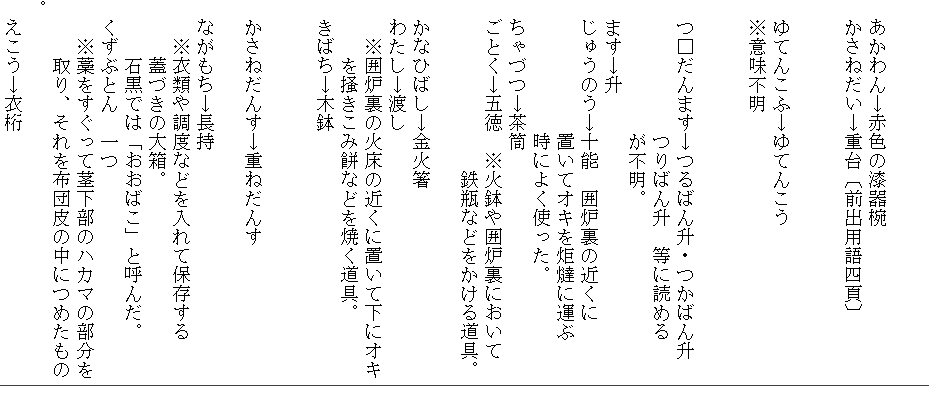 あかわん→赤色の漆器椀
かさねだい→重台〔前出用語四頁〕
ゆてんこふ→ゆてんこう
※意味不明
つ□だんます→つるばん升・つかばん升
つりばん升　等に読める
が不明。
ます→升
じゅうのう→十能　囲炉裏の近くに
置いてオキを炬燵に運ぶ
時によく使った。
ちゃづつ→茶筒
ごとく→五徳　※火鉢や囲炉裏において
鉄瓶などをかける道具。
かなひばし→金火箸
わたし→渡し
※囲炉裏の火床の近くに置いて下にオキ
を掻きこみ餅などを焼く道具。
きばち→木鉢
かさねだんす→重ねだんす
ながもち→長持
※衣類や調度などを入れて保存する
蓋づきの大箱。
石黒では「おおばこ」と呼んだ。
くずぶとん　一つ
※藁をすぐって茎下部のハカマの部分を
取り、それを布団皮の中につめたもの
。
えこう→衣桁